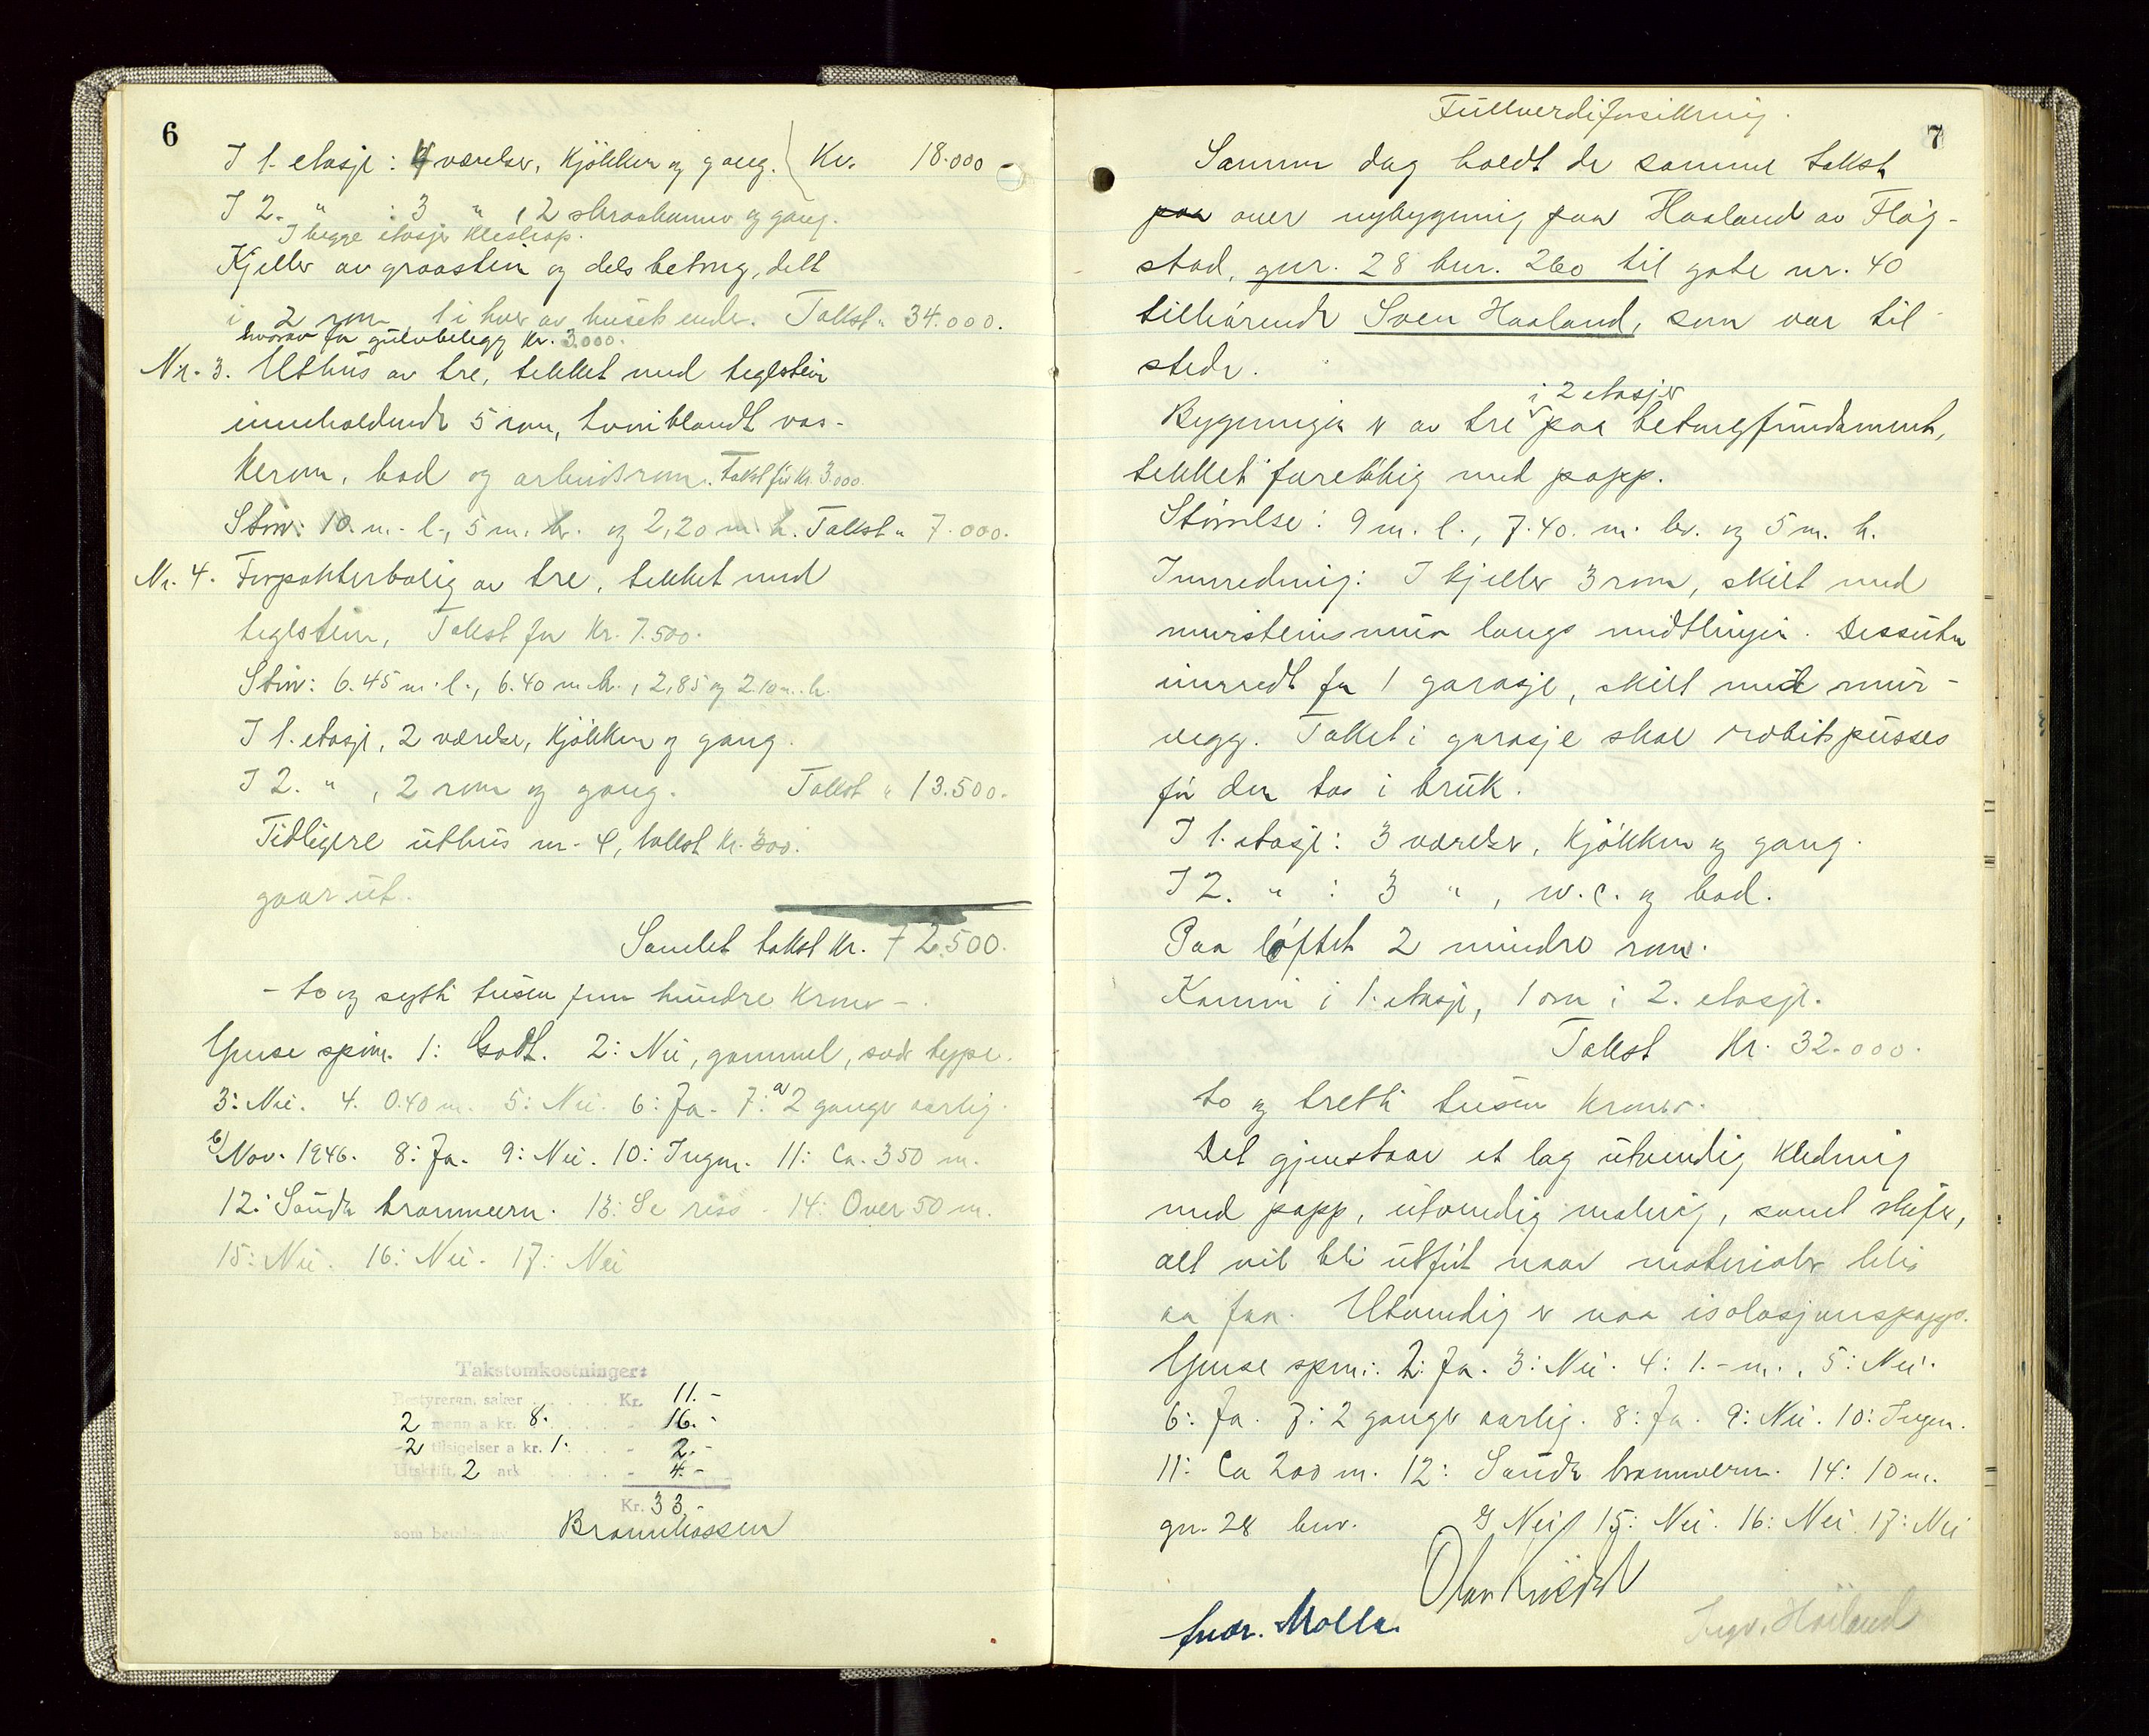 6
I 1. etasje: 4 værelser, kjøkken og gang. Kr. 18.000 -
I 2. " : 3 " , 2 skraakammer og gang.
I begge etasjer kleskap.
Kjeller av graastein og dels betong, delt
i 2 rom, 1 i hver av husets ender. Takst " 34.000.
hvorav for gulvbelegg kr. 3.000.
Nr. 3. Uthus av tre, tekket med teglstein
inneholdende 5 rom, hvoriblandt vas-
kerom, bad og arbeidsrom. Takst før kr. 3.000.
Størr: 10. m. l., 5 m. br. og 2,20 m. h. Takst " 7.000.
Nr. 4. Forpakterbolig av tre, tekket med
teglstein, Takst før Kr. 7.500.
Størr: 6.45 m. l., 6.40 m. br., 2,85 og 2.10 m. h.
I 1. etasje, 2 værelser, kjøkken og gang.
I 2. " , 2 rom og gang. Takst " 13.500.
Tidligere uthus nr. 4, takst kr. 300.
gaar ut.
Samlet takst kr. 72.500.
- to og sytti tusen fem hundre kroner -.
Gruse spm. 1: Godt. 2: Nei, gammel, type.
3: Nei. 4. 0.40 m. 5: Nei. 6: Ja. 7: a) 2 ganger aarlig.
b) Nov. 1946. 8: Ja. 9: Nei. 10: Ingen. 11: Ca. 350 m.
12: Sandn brannvern. 13: Se riss. 14: Over 50 m.
15: Nei. 16: Nei. 17: Nei
Takstomkostninger:
Bestyreren, salær . . . . . Kr. 11.-
2 menn a kr. 8. . . . . - 16.-
2 tilsigelser a kr. 1. . . . - 2.-
Utskrift, 2 ark . . . . . - 4.-
Kr. 33.-
som betales av Brannkassen
Fullverdiforsikring.
7
Samme dag holdt de samme takst
paa over nybygning paa Haaland av Flog-
stad, gnr. 28 bnr. 260 til gate nr. 40
tilhørende Sven Haaland, som var til
stede.
i 2 etasjer
Bygningen er av tre paa betongfundament,
tekket foreløbig med papp.
Størrelse: 9 m. l., 7.40. m. br. og 5 m. h.
Innredning: I kjeller 3 rom, skilt med
mursteinsmur langs midtlinjen. Dessuten
innredt for 1 garasje, skilt med mur-
vegg. Taket i garasje skal rabitspusses
før den tas i bruk.
I 1. etasje: 3 værelser, kjøkken og gang.
I 2. " : 3 " , w.c. og bad.
Paa loftet 2 mindre rom.
Kamin i 1. etasje, 1 ovn i 2. etasje.
Takst Kr. 32.000.
to og tretti tusen kroner.
Det gjenstaar et lag utvendig kledning
med papp, utvendig maling, samt skifer,
alt vil bli utført naar materialer blir
aa faa. Utvendig er naa isolasjonspapp.
Gruse spm: 2: Ja. 3: Nei. 4: 1.- m., 5: Nei.
6: Ja. 7: 2 ganger aarlig. 8: Ja. 9: Nei. 10: Ingen.
11: Ca 200 m. 12: Sandn brannvern. 14: 10 m.
gnr. 28 bnr. Nei 15: Nei. 16: Nei. 17: Nei
Olav
Andr. Molla.
Ingv. Høiland